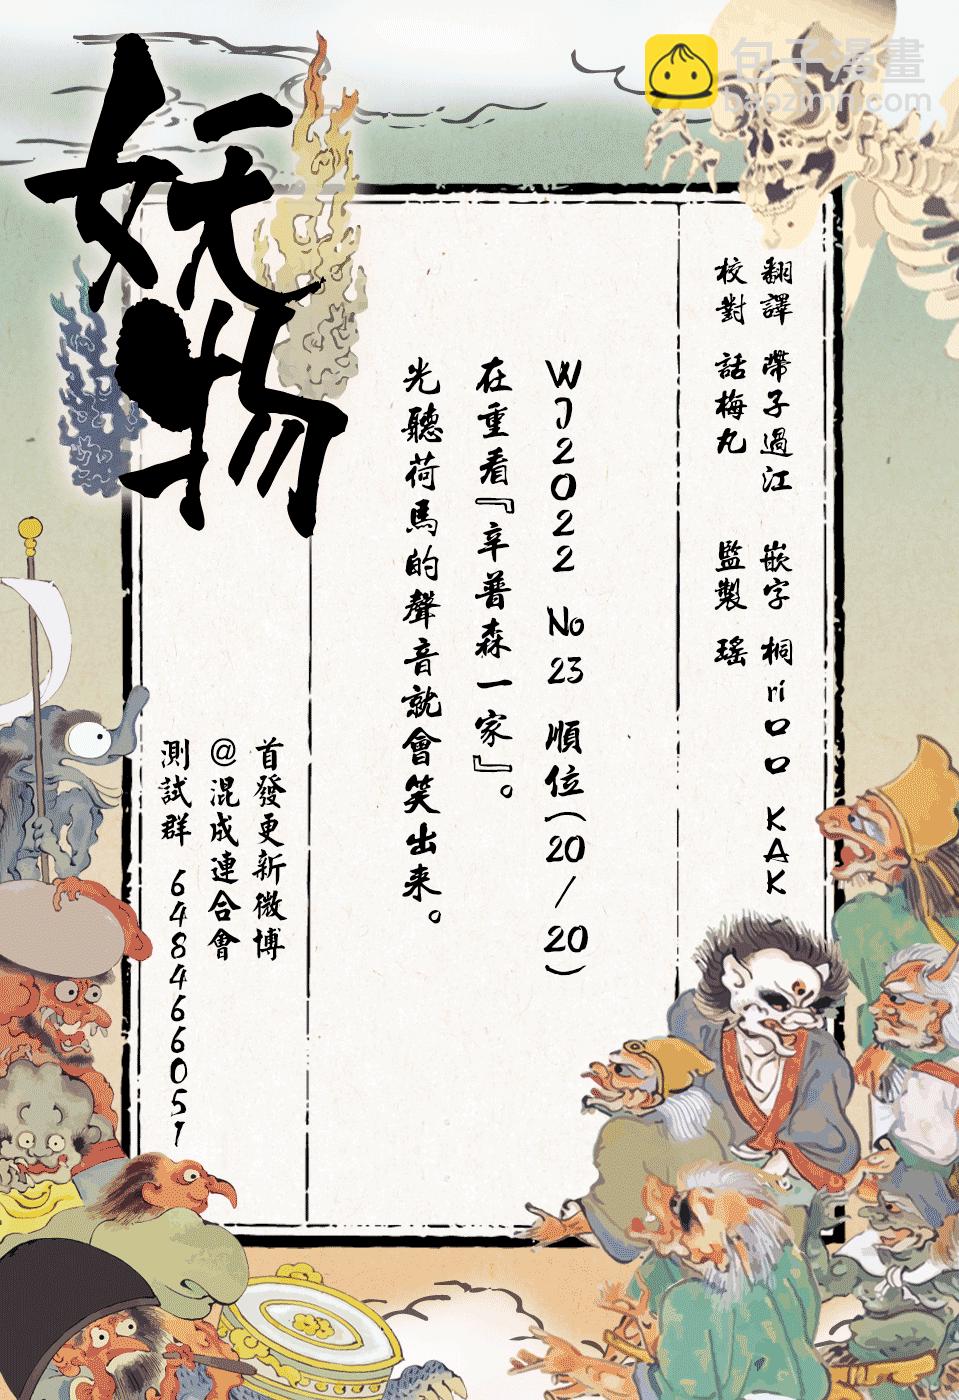 包子漫畫
baozimh.com
妖物
翻譯 帶子過江 嵌字 桐ri口口 KAK
校對 話梅丸 監製 瑤
WJ2022 No 23 順位(20/20)
在重看『辛普森一家』。
光聽荷馬的聲音就會笑出来。
首發更新微博
@混成連合會
測試群 648466051